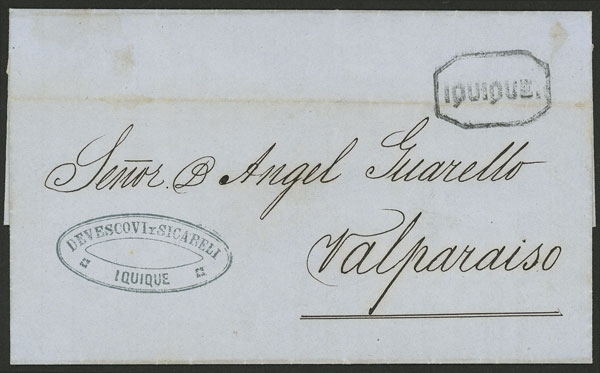 IQUIQUE.
Señor. D Angel Guarello
Valparaiso
DEVESCOVI Y SICARELI
IQUIQUE